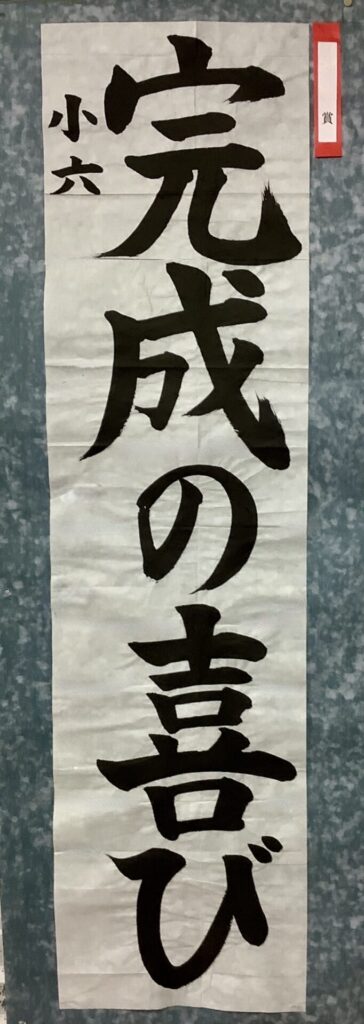 賞
完成の喜び
小六